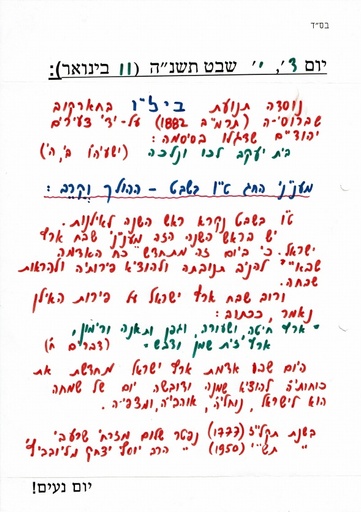 בס"ד
יום ד', י' שבט תשנ"ה (11 בינואר):
נוסדה תנועת ביל"ו בחארקוב
שברוסי-ה (תרמ"ב 1882) על-ידי צעירים
יהודי"ם שדגלו בסיסמה:
בית יעקב לכו ונלכה (ישעי'הו ב', ה')
מעני'ני החג ט"ו בשבט - ההולך וקרב:
ט"ו בשבט נקרא ראש השנה לאילנות.
יש בראש השנה הזה מעני'ני שבח ארץ
ישראל. כי ביום זה מתחדש כח האדמה
להניב תנובתה ולהוציא פירותיה ולהראות
שבחה.
ורוב שבח ארץ ישראל על פירות האילן
נאמר, ככתוב:
"ארץ חיטה ושעורה, וגפן ותאנה ורימון,
ארץ זית שמן ודבש" (דברים ח')
היום שבו אדמת ארץ ישראל מתחדשת את
כוחותיה להוציא שמנה ודובשה יום של שמחה
הוא לישראל, נוחליה, אוהביה, ומצפיה.
בשנת תקל"ז (1777) נפטר שלום מזרחי שרעבי
" תש"י (1950) " הרב יוסף יצחק מליובביץ'
יום נעים!